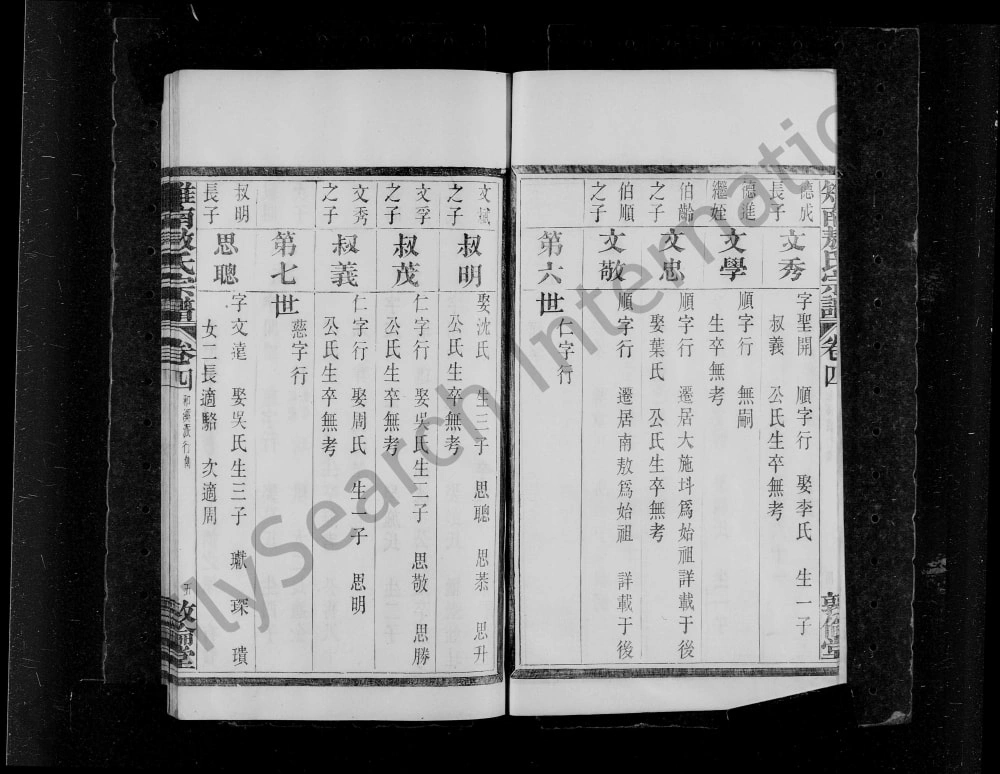 德成
長子
文秀
字聖開 順字行 娶李氏 生一子
叔義 公氏生卒無考
德進
繼姪
文學
順字行 無嗣
生卒無考
伯齡
之子
文忠
順字行 遷居大施圩爲始祖詳載于後
娶葉氏 公氏生卒無考
伯順
之子
文敬
順字行 遷居南敖爲始祖 詳載于後
第六世
仁字行
文斌
之子
叔明
娶沈氏 生三子 思聰 思恭 思升
公氏生卒無考
文孚
之子
叔茂
仁字行 娶吳氏生二子 思敬 思勝
公氏生卒無考
文秀
之子
叔義
仁字行 娶周氏 生一子 思明
公氏生卒無考
第七世
慈字行
叔明
長子
思聰
字文達 娶吳氏生三子 瓛 琛 瓆
女二長適駱 次適周
氏宗譜 卷四
FamilySearch International